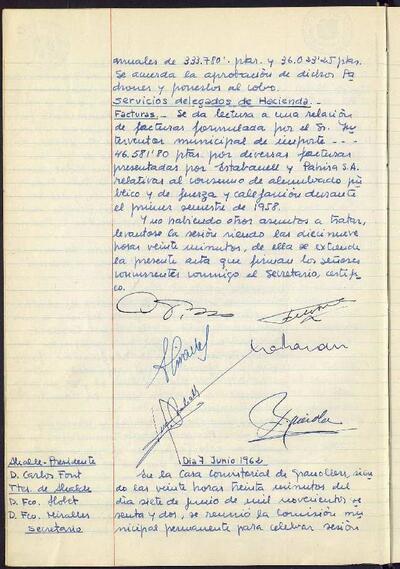 anuales de 333.780'- ptas. y 36.023'25 ptas.
Se acuerda la aprobación de dichos Pa
drones y ponerlos al cobro.
Servicios delegados de Hacienda.-
Facturas.- Se da lectura a una relación
de facturas formulada por el Sr. In
terventor municipal de importe - - -
46.581'80 ptas. por diversas facturas
presentadas por Estabanell y Pahisa S.A.
relativas al consumo de alumbrado pú
blico y de fuerza y calefacción durante
el primer semestre de 1958.
Y no habiendo otros asuntos a tratar,
levantose la sesión siendo las diecinueve
horas veinte minutos, de ella se extiende
la presente acta que firman los señores
concurrentes conmigo el Secretario, certifi
co.
Día 7 Junio 1962
Alcalde-Presidente
D. Carlos Font
Ttes. de Alcalde
D. Fco. Llobet
D. Fco. Miralles
Secretario
En la Casa Consistorial de Granollers, sien
do las veinte horas treinta minutos del
día siete de junio de mil novecientos se
senta y dos, se reunió la Comisión mu
nicipal permanente para celebrar sesión